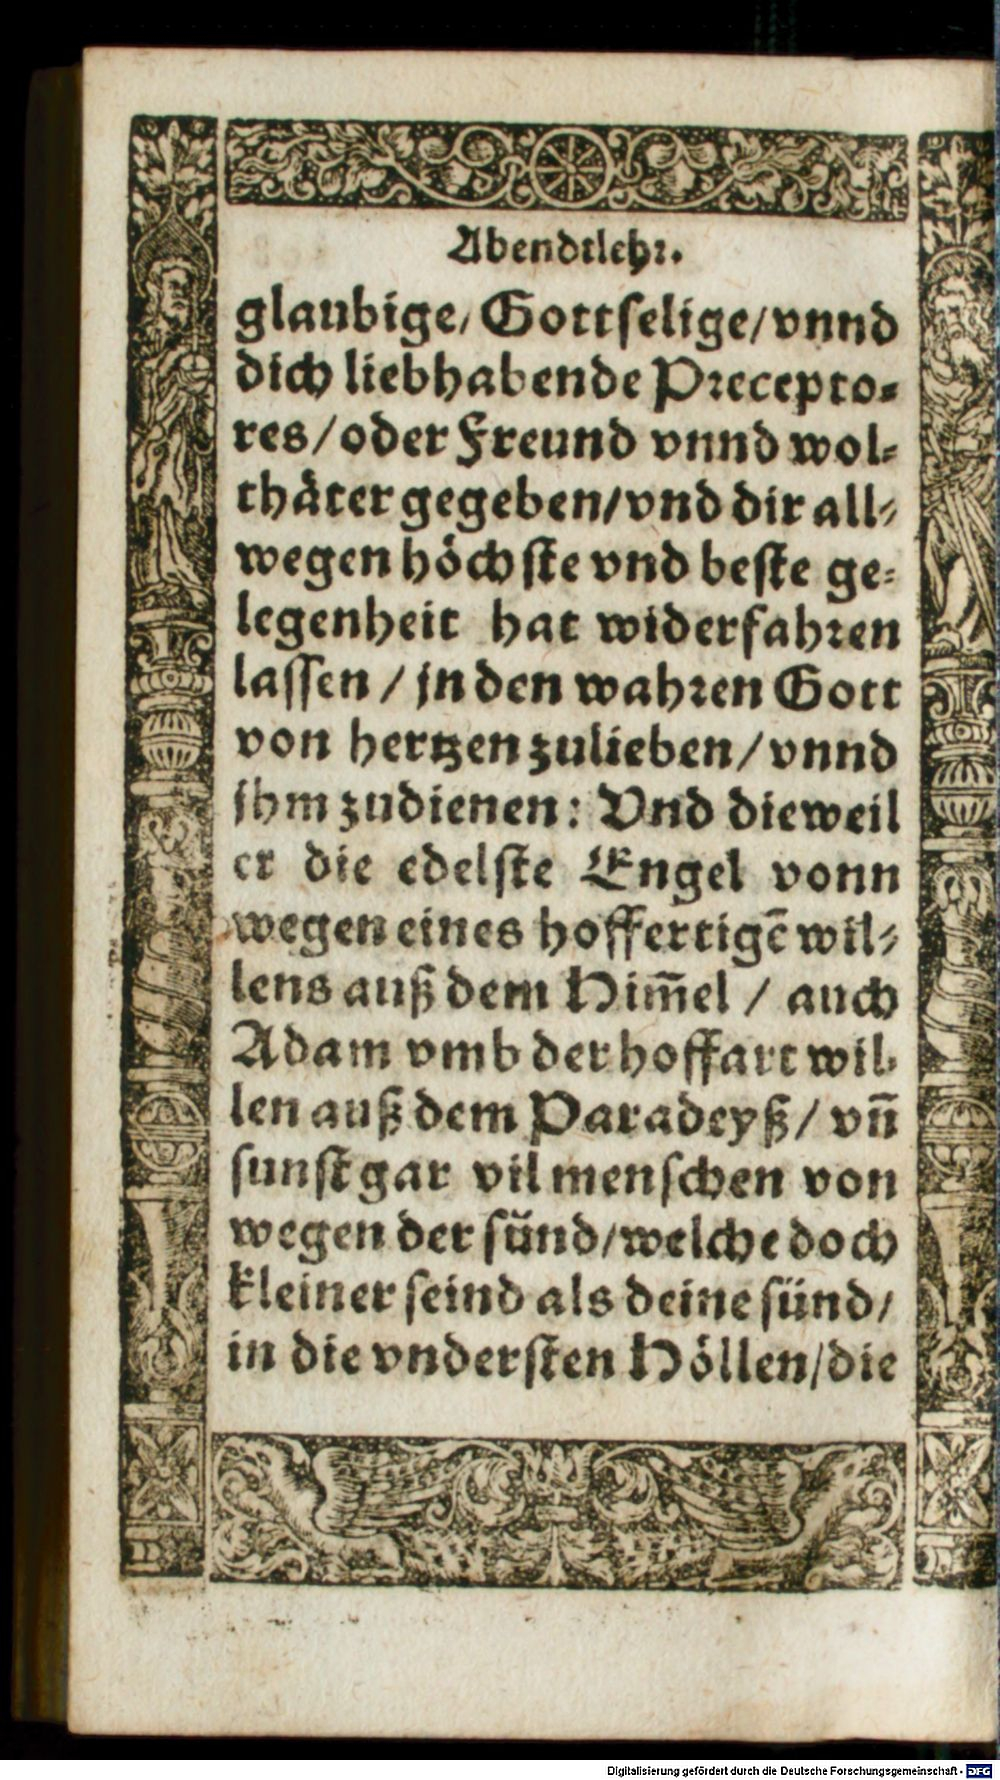 Abendtlehr.
glaubige/ Gottselige/ vnnd
dich liebhabende Precepto-
res/ oder Freund vnnd wol-
thäter gegeben/ vnd dir all-
wegen höchste vnd beste ge-
legenheit hat widerfahren
lassen / jn den wahren Gott
von hertzen zulieben/ vnnd
jhm zudienen: Vnd dieweil
er die edelste Engel vonn
wegen eines hoffertigē wil-
lens auß dem Him̄el / auch
Adam vmb der hoffart wil-
len auß dem Paradeyß/ vn̄
sunst gar vil menschen von
wegen der sünd/ welche doch
kleiner seind als deine sünd/
in die vndersten Höllen/ die
Digitalisierung gefördert durch die Deutsche Forschungsgemeinschaft - DFG